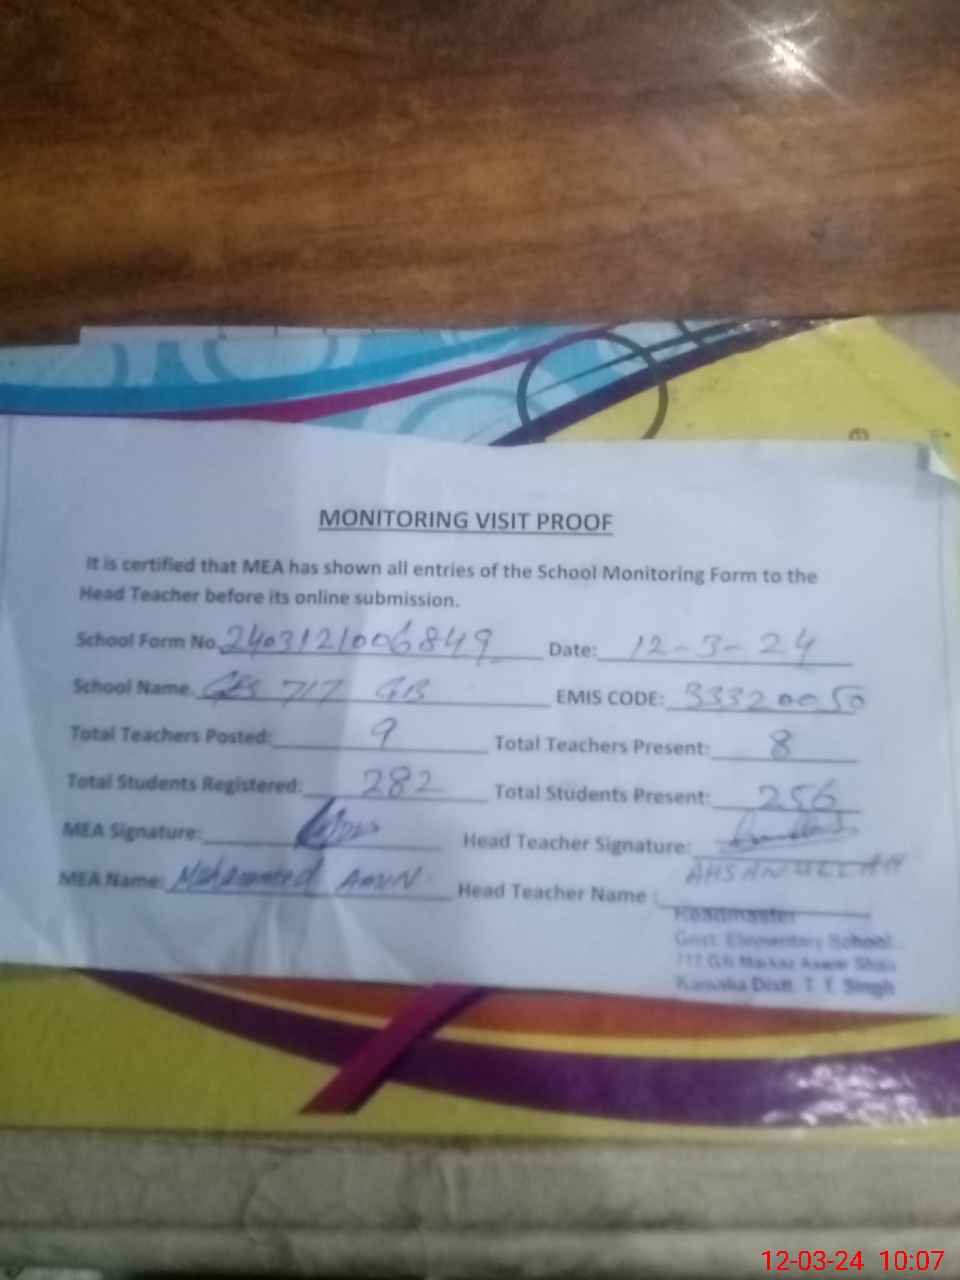 MONITORING VISIT PROOF
It is certified that MEA has shown all entries of the School Monitoring Form to the
Head Teacher before its online submission.
School Form No. 2403121006849 Date: 12-3-24
School Name. GES 717 GB EMIS CODE: 33320050
Total Teachers Posted: 9 Total Teachers Present: 8
Total Students Registered: 282 Total Students Present: 256
MEA Signature: Head Teacher Signature:
AHSANULLAH
MEA Name: Mohammed Amin Head Teacher Name :
Headmaster
Govt. Elementary School
717 G.B Markaz
Kamalia Distt. T. T. Singh
12-03-24 10:07